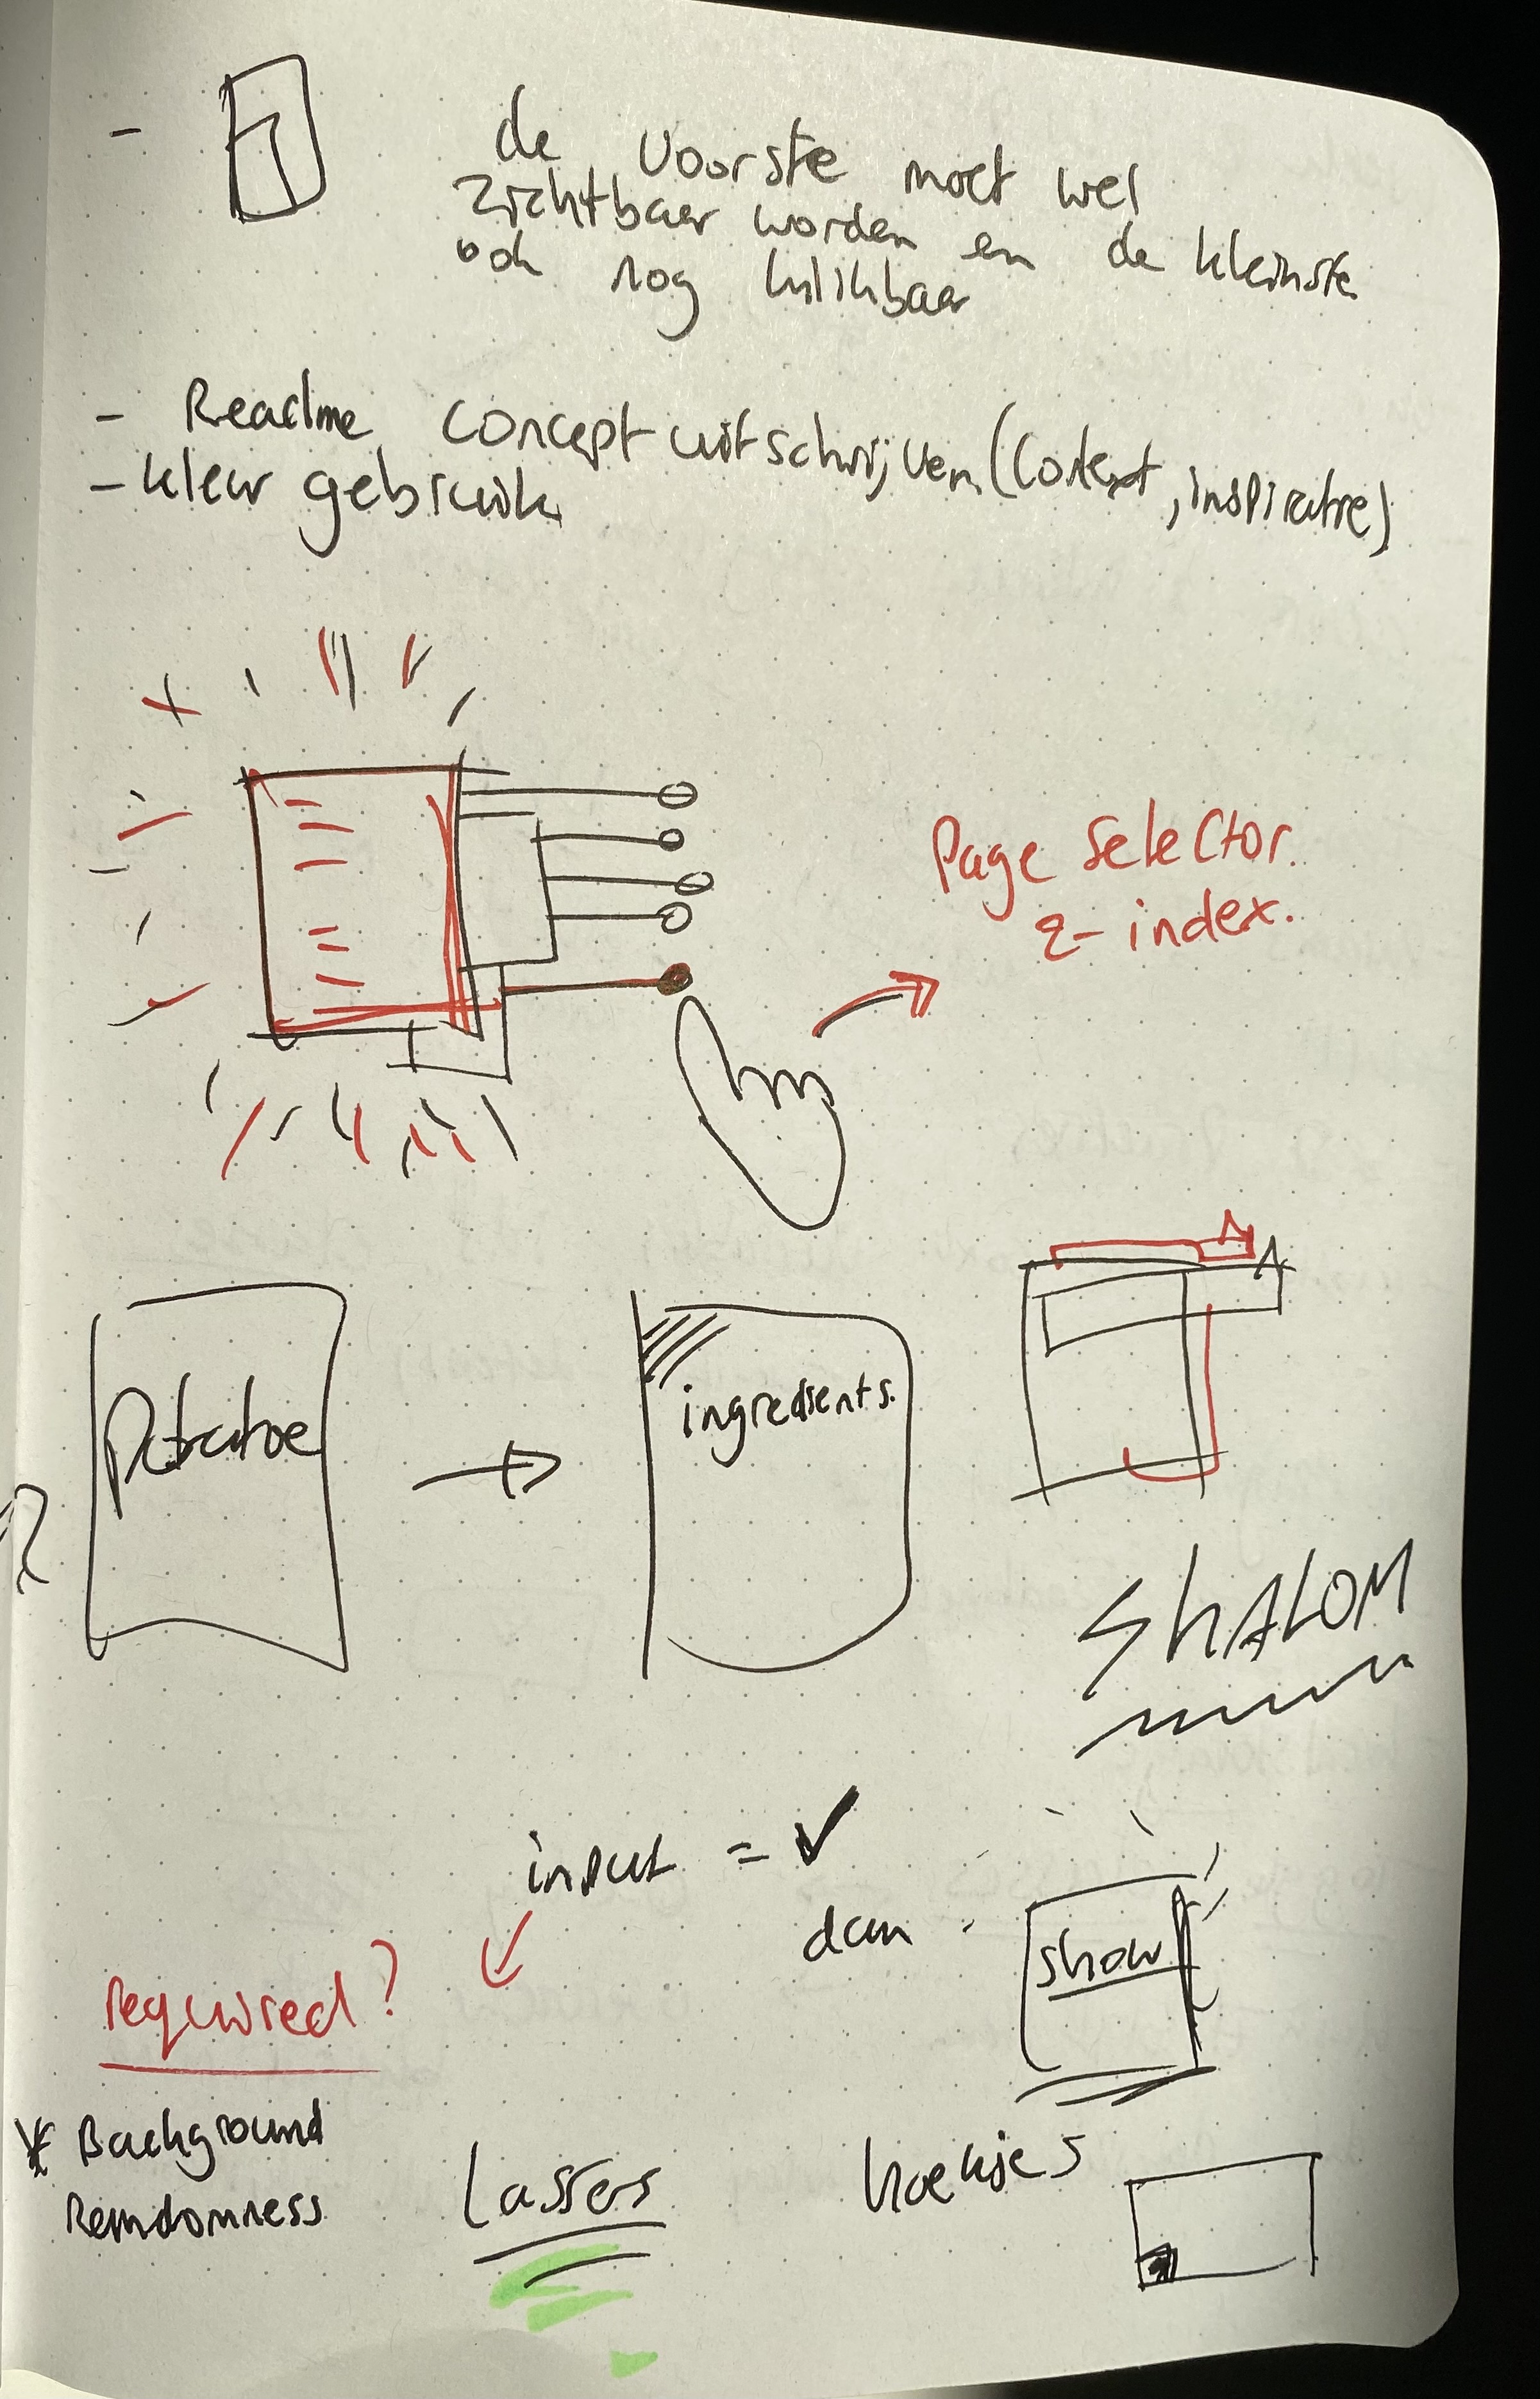 - de voorste moet wel
zichtbaar worden en de kleinste
ook nog klikbaar
- Readme concept uitschrijven (Context, inspiratie)
- kleur gebruik
Page selector.
z-index.
Potatoe
ingredients.
SHALOM
input = ✓
dan
show
required?
* Background
Randomness
Lasers
hoekjes